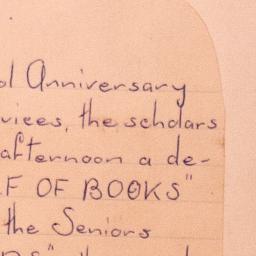 ol Anniversary
vices, the scholars
afternoon a de-
F OF BOOKS"
the Seniors